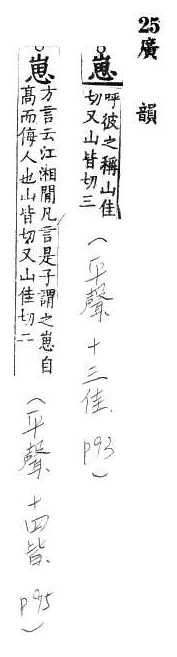 25 廣韻
崽 呼彼之稱山佳
切又山皆切三
(平聲 十三佳 p93)
崽 方言云江湘閒凡言是子謂之崽自
高而侮人也山皆切又山佳切二
(平聲 十四皆 p95)